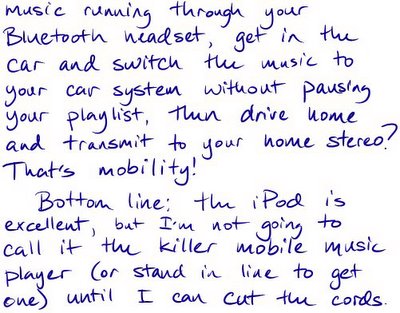 music running through your
Bluetooth headset, get in the
car and switch the music to
your car system without pausing
your playlist, then drive home
and transmit to your home stereo?
That's mobility!
Bottom line: the iPod is
excellent, but I'm not going to
call it the killer mobile music
player (or stand in line to get
one) until I can cut the cords.